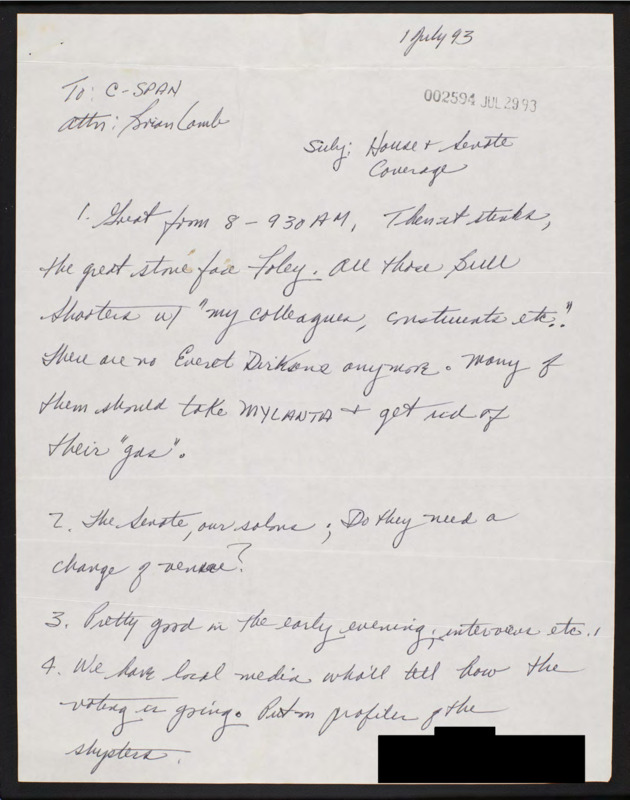 1 July 93
To: C-SPAN
002594 JUL 29 93
Attn: Brian Lamb
Subj: House + Senate
Coverage
1. Great from 8 - 930 AM, Then it stinks,
the great stone face Foley. All those Bull
Shooters w/ "my colleagues, constiuents etc."
There are no Everet Dirksens anymore. Many of
them should take MYLANTA + get rid of
their "gas".
2. The Senate, our solons; Do they need a
change of venue?
3. Pretty good in the early evening; interviews etc.
4. We have local media who'll tell how the
voting is going. Put on profiles of the
shysters.